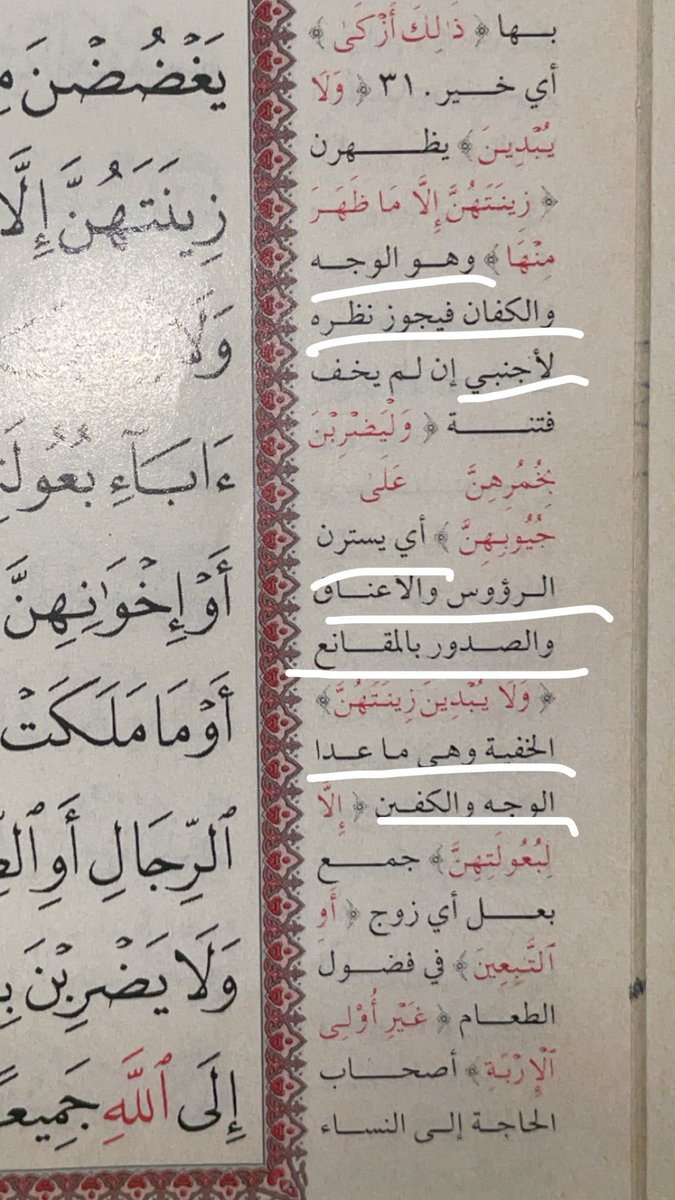 بها ﴿ ذَٰلِكَ أَزْكَىٰ ﴾
أي خير. ٣١ ﴿ وَلَا
يُبْدِينَ ﴾ يظهرن
﴿ زِينَتَهُنَّ إِلَّا مَا ظَهَرَ
مِنْهَا ﴾ وهو الوجه
والكفان فيجوز نظره
لأجنبي إن لم يخف
فتنة ﴿ وَلْيَضْرِبْنَ
بِخُمُرِهِنَّ عَلَىٰ
جُيُوبِهِنَّ ﴾ أي يسترن
الرؤوس والاعناق
والصدور بالمقانع
﴿ وَلَا يُبْدِينَ زِينَتَهُنَّ ﴾
الخفية وهي ما عدا
الوجه والكفين ﴿ إِلَّا
لِبُعُولَتِهِنَّ ﴾ جمع
بعل أي زوج ﴿ أَوِ
ٱلتَّٰبِعِينَ ﴾ في فضول
الطعام ﴿ غَيْرِ أُوْلِى
ٱلْإِرْبَةِ ﴾ أصحاب
الحاجة إلى النساء
يَغْضُضْنَ
زِينَتَهُنَّ إِلَّا
وَلَا
ءَابَآءِ بُعُولَ
أَوْ إِخْوَٰنِهِنَّ
أَوْ مَا مَلَكَتْ
ٱلرِّجَالِ أَوِ
وَلَا يَضْرِبْنَ
إِلَى ٱللَّهِ جَمِيعًا